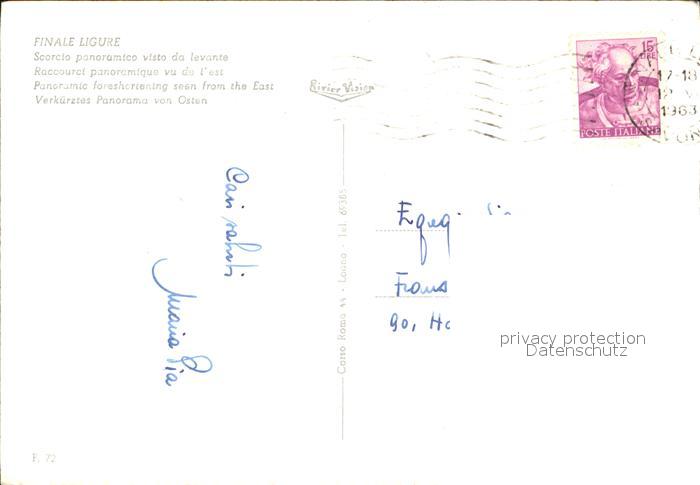 FINALE LIGURE
Scorcio panoramico visto da levante
Raccourci panoramique vu de l'est
Panoramic foreshortening seen from the East
Verkürztes Panorama von Osten
15
LIRE
POSTE ITALIANE
17-18
12
1963
Cari saluti
Maria Pia
Corso Roma 44 - Loano - Tel. 69385
Egeg.
Frans
90, Hc
privacy protection
Datenschutz
F. 72